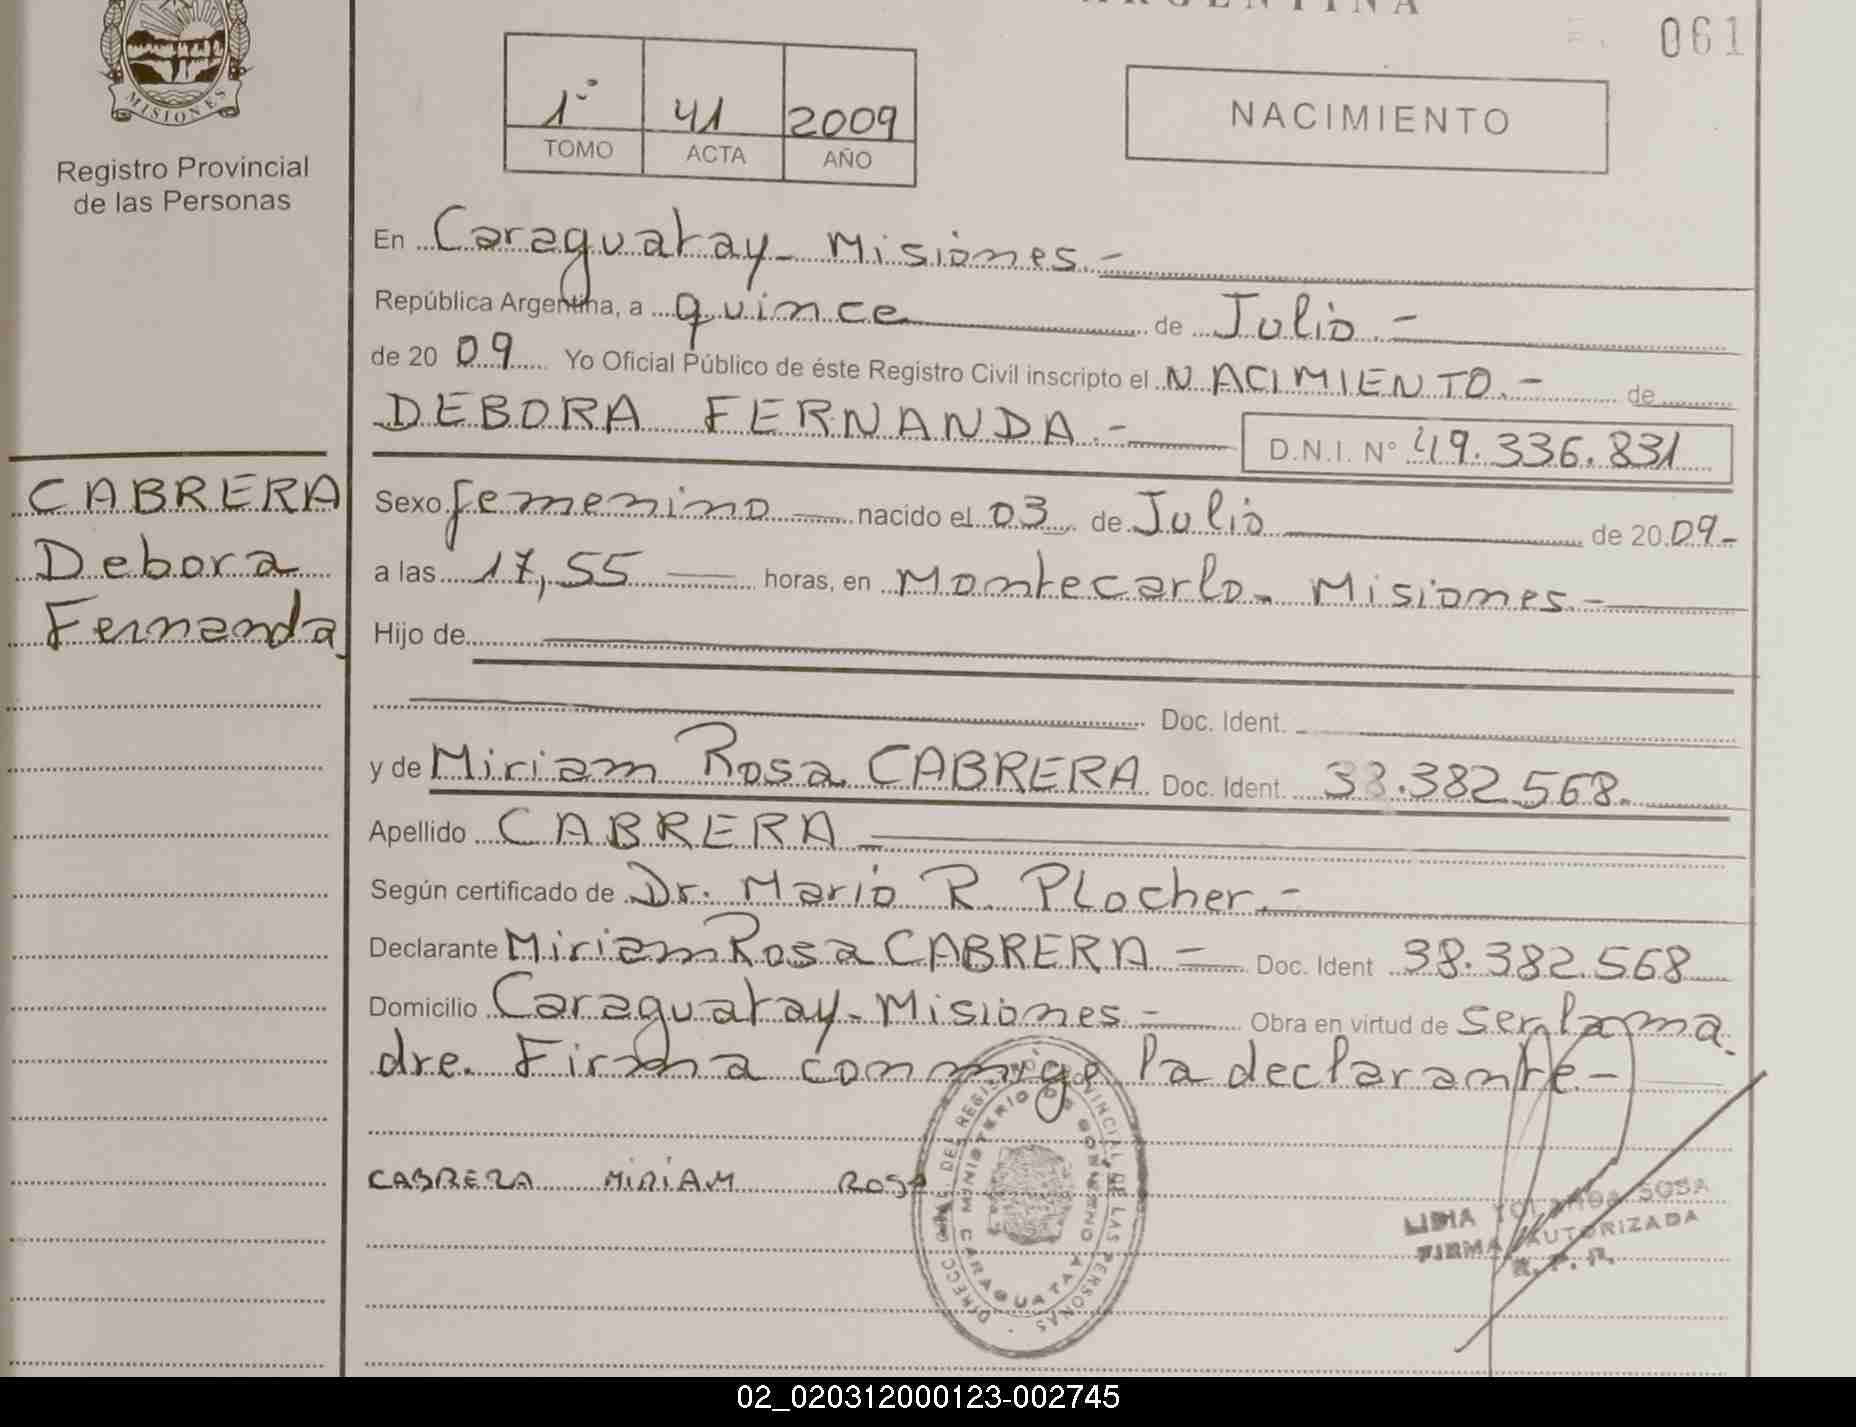 ARGENTINA
061
MISIONES
Registro Provincial
de las Personas
1º 41 2009
TOMO ACTA AÑO
NACIMIENTO
En Caraguatay - Misiones.-
República Argentina, a quince de Julio.-
de 20 09 Yo Oficial Público de éste Registro Civil inscripto el NACIMIENTO.- de
DEBORA FERNANDA.- D.N.I. Nº 49.336.831
CABRERA
Debora
Fernanda
Sexo femenino — nacido el 03 de Julio de 20 09-
a las 17,55 — horas, en Montecarlo - Misiones -
Hijo de
Doc. Ident.
y de Miriam Rosa CABRERA Doc. Ident. 38.382.568.
Apellido CABRERA
Según certificado de Dr. Mario R. Plocher.-
Declarante Miriam Rosa CABRERA = Doc. Ident 38.382.568
Domicilio Caraguatay - Misiones - Obra en virtud de ser la ma
dre. Firma conmigo la declarante -
CABRERA MIRIAM ROSA
DIRECC GRAL DEL REGISTRO PROVINCIAL DE LAS PERSONAS
MINISTERIO DE GOBIERNO
CARAGUATAY
LIDIA YOLANDA SOSA
FIRMA AUTORIZADA
R. P. P.
02_020312000123-002745